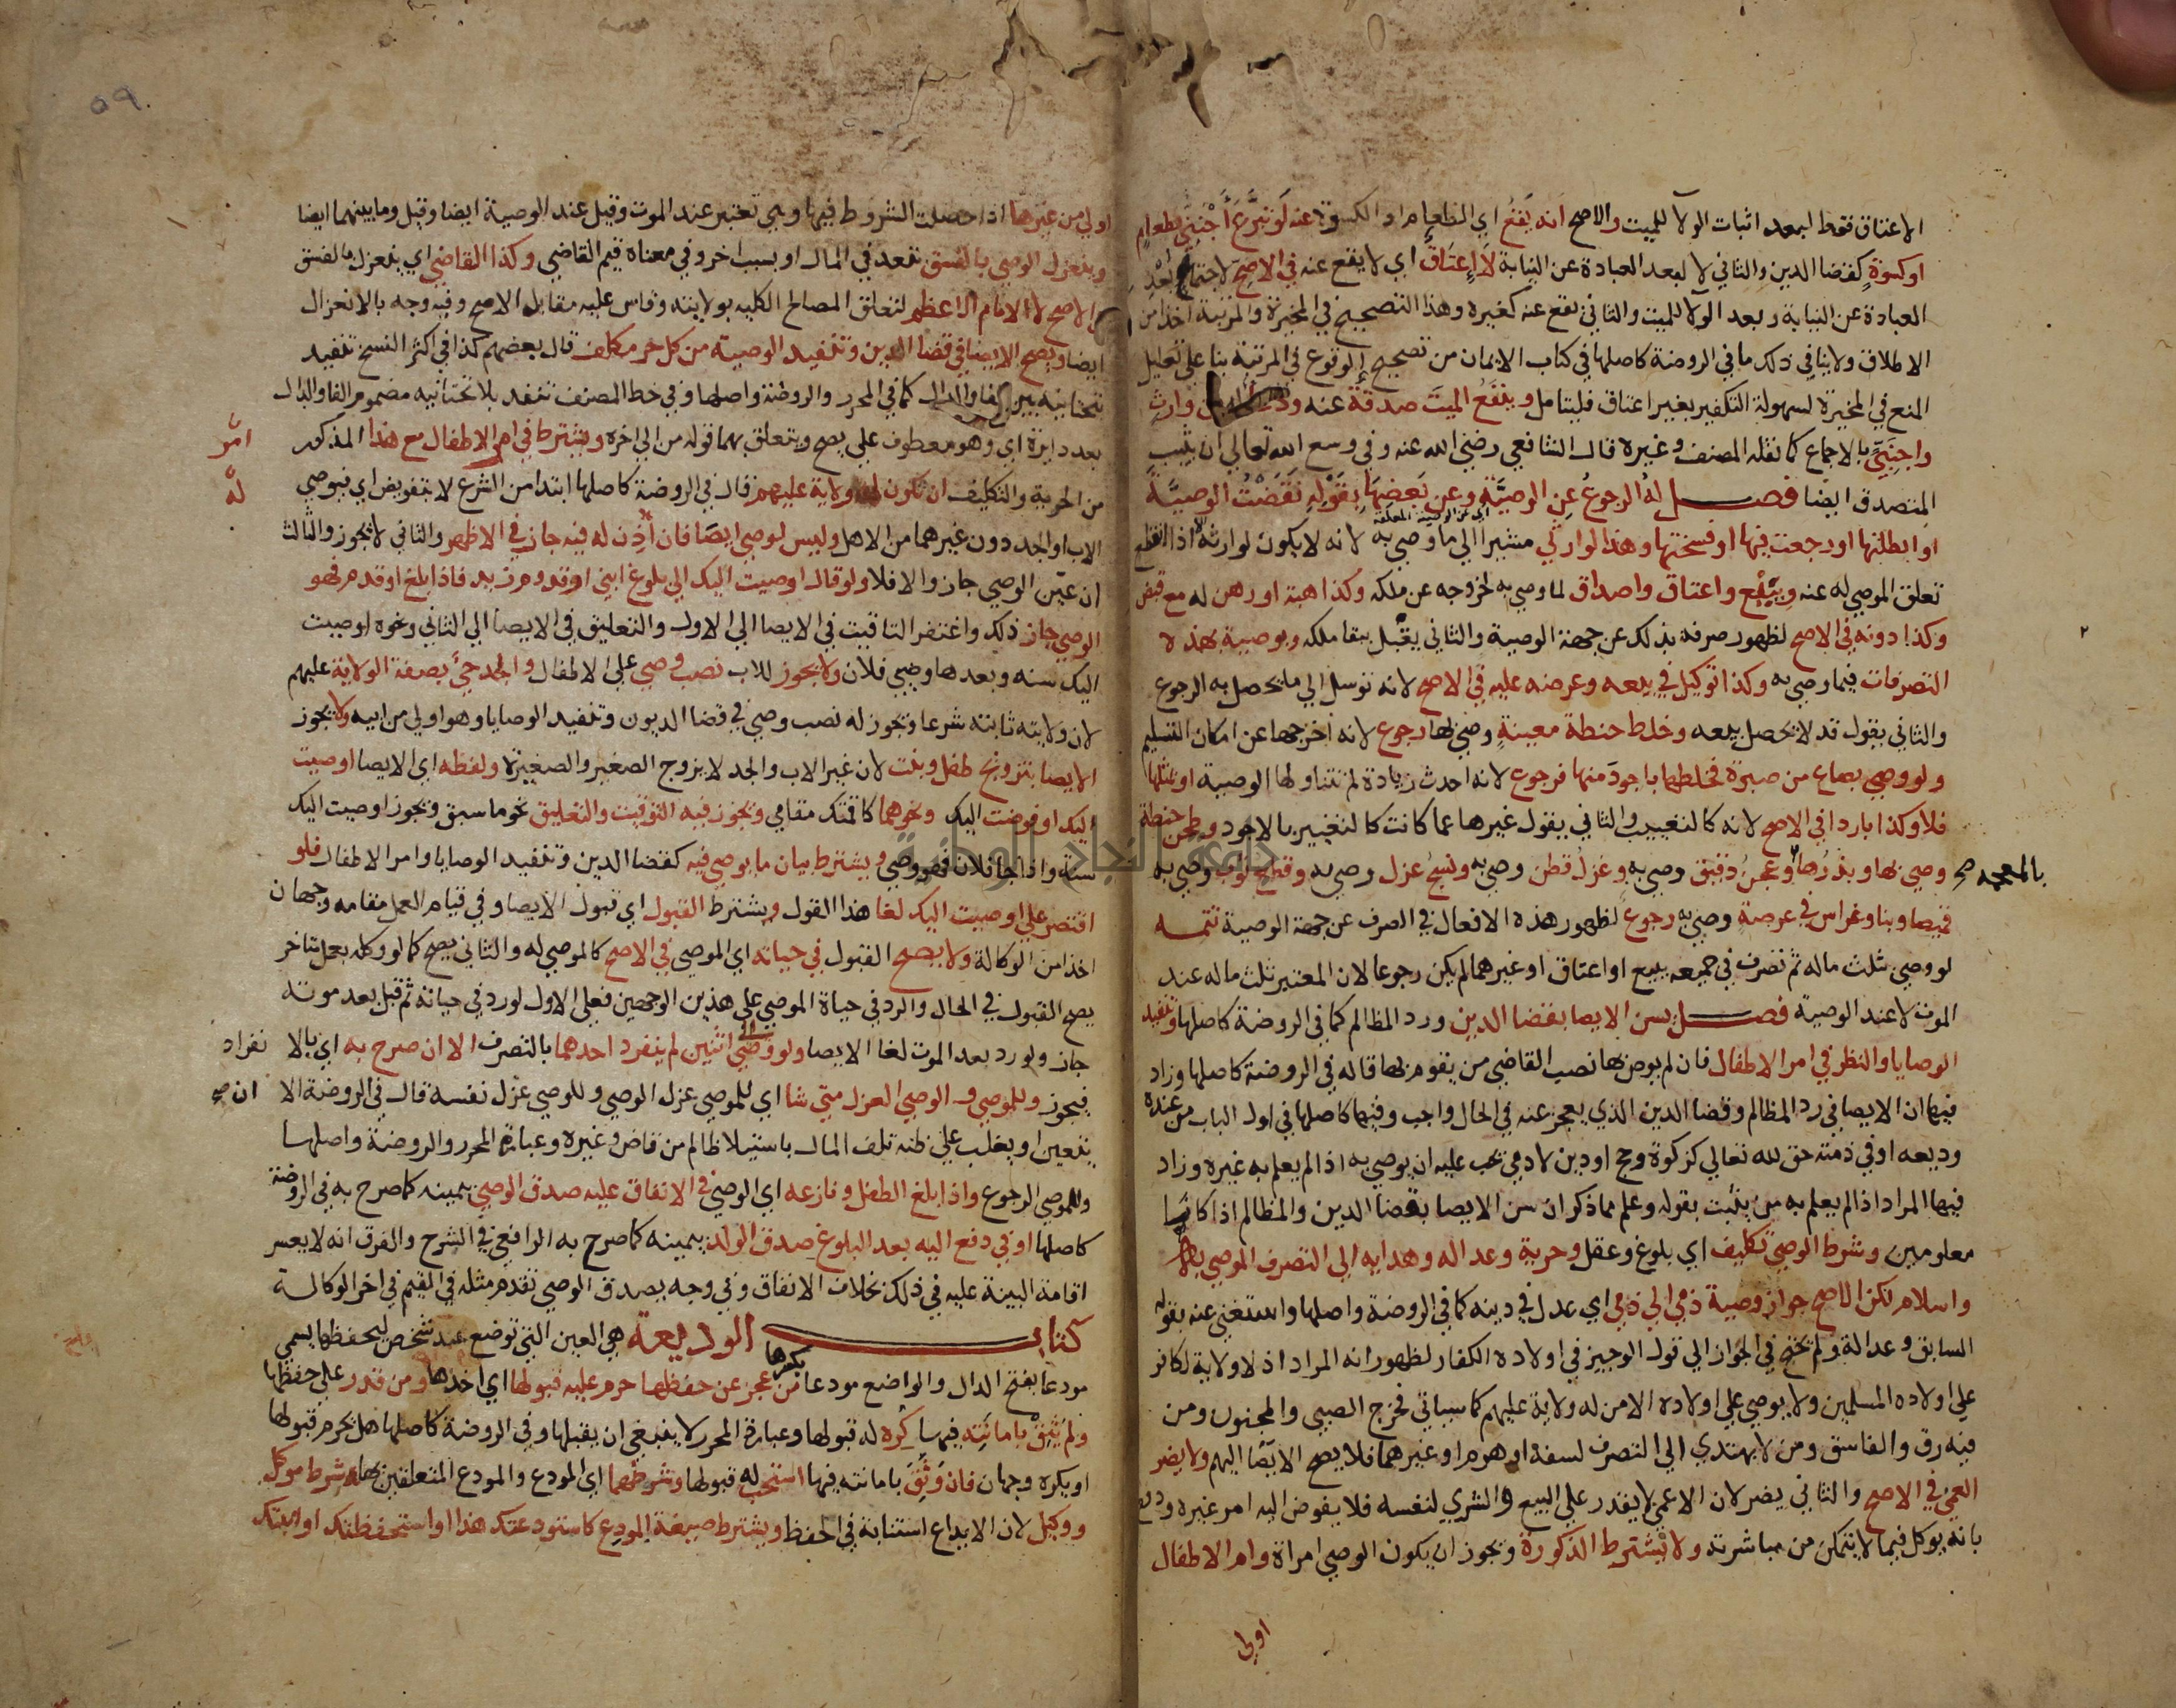 الاعتاق فقط لبعد اثبات الولآ للميت والاصح انه يَقعُ اي الطعام او الكسوة عنه لَو تبرَّعَ أَجْنبِيّ بطعامٍ
اوكسوَةٍ كقضا الدين والثاني لا لبعد العبادة عن النيابة لَا إِعتَاقٍ اي لا يقع عنه في الاصح لاجتماع بُعْدِ
العبادة عن النيابة وبعد الولآ للميت والثاني يقع عنه كغيره وهذا التصحيح في المخيرة والمرتبة اخذا من
الاطلاق ولا ينافي ذلك ما في الروضة كاصلها في كتاب الايمان من تصحيح الوقوع في المرتبة بنا على تعليل
المنع في المخيرة لسهولة التكفير بغير اعتاق فليتامل وينفَعُ الميتَ صدَقة عنه ودُعَآءٌ من وارثٍ
واجنَبِيّ بالاجماع كما نقله المصنف وغيره قال الشافعي رضي الله عنه وفي وسع الله تعالى ان يثيب
المتصدق ايضا فصل لهُ الرجوعُ عنِ الوصيَّة وعن بَعضِهَا بِقَوْلِهِ نَقَضْتُ الوصِيَّةَ
او ابطلتها او رجعت فيها او فسختها وهذا لوارثي مشيرا الى ما وصى به لانه لا يكون لوارثه الا اذا انقطع
تعلق الموصى له عنه وبِبَيْعٍ واعتاق واصداق لما وصي به لخروجه عن ملكه وكذا هبة او رهن له مع قبض
وكذا دونه في الاصح لظهور صرفه بذلك عن جهة الوصية والثاني يقول ببقا ملكه وبوصية بهذه
التصرفات فيما وصى به وكذا توكيل في بيعه وعرضه عليه في الاصح لانه توسل الى ما يحصل به الرجوع
والثاني يقول قد لا يحصل بيعه وخلط حنطة معينةٍ وصي بها رجوع لانه اخرجها عن امكان التسليم
ولو وصى بصاع من صبرة فخلطها باجودَ منها فرجوع لانه احدث زيادة لم تتناولها الوصية او بمثلها
فلا وكذا باردا في الاصح لانه كالتعييب والثاني يقول غيرها عما كانت كالتغيير بالاجود وطحن حنطة
بالمعجمه صح وصى بها وبذرُها وعجنُ دقيق وصى به وغزلُ قطن وصى به ونسجُ غزل وصى به وقطع ثوب وصى به
قميصا وبنا وغراس في عرصةٍ وصى به رجوع لظهور هذه الافعال في الصرف عن جهة الوصية تتمه
لو وصى بثلث ماله ثم تصرف في جميعه ببيع او اعتاق او غيرهما لم يكن رجوعا لان المعتبر ثلث ماله عند
الموت لا عند الوصية فصل يسن الايصا بقضا الدين ورد المظالم كما في الروضة كاصلها وتنفيذ
الوصايا والنظر في امر الاطفال فان لم يوص بها نصب القاضي من يقوم بها قاله في الروضة كاصلها وزاد
فيها ان الايصا في رد المظالم وقضا الدين الذي يعجز عنه في الحال واجب وفيها كاصلها في اول الباب من عنده
وديعه او في ذمته حق لله تعالى كزكوة وحج او دين لادمي يجب عليه ان يوصي به اذا لم يعلم به غيره وزاد
فيها المراد اذا لم يعلم به من يثبت بقوله وعلم مما ذكر ان سن الايصا بقضا الدين والمظالم اذا كانا
معلومين وشرط الوصي تكليف اي بلوغ وعقل وحرية وعداله وهدايه الى التصرف الموصى به
واسلام لكن الاصح جواز وصية ذمي الى ذمي اي عدل في دينه كما في الروضة واصلها واستغنى عنه بقوله
السابق وعدالة ولم يحتج في الجواز الى قول الوجيز في اولاده الكفار لظهور انه المراد اذ لا ولاية لكافر
على اولاده المسلمين ولا يوصي على اولاده الا من له ولاية عليهم كما سياتي فخرج الصبي والمجنون ومن
فيه رق والفاسق ومن لا يهتدي الى التصرف لسفه او هرم او غيرهما فلا يصح الايصا اليهم ولا يضر
العمى في الاصح والثاني يضر لان الاعمى لا يقدر على البيع والشرى لنفسه فلا يفوض اليه امر غيره ودفع
بانه يوكل فيما لا يتمكن من مباشرته ولا تشترط الذكورة ويجوز ان يكون الوصي امراة وام الاطفال
اولى
٥٩
اولى من غيرها اذا حصلت الشروط فيها وهي تعتبر عند الموت وقيل عند الوصية ايضا وقيل وما بينهما ايضا
وينعزل الوصي بالفسق بتعد في المال او بسبب اخر وفي معناه قيم القاضي وكذا القاضي اي ينعزل بالفسق
في الاصح لا الامام الاعظم لتعلق المصالح الكليه بولايته وقاس عليه مقابل الاصح وفيه وجه بالانعزال
ايضا ويصح الايصا في قضا الدين وتنفيذ الوصية من كل حر مكلف قال بعضهم كذا في اكثر النسخ تنفيذ
بتحتانيه بين الفا والذال كما في المحرر والروضة واصلها وفي خط المصنف تنفذ بلا تحتانيه مضموم الفا والذال
بعد دايرة اي وهو معطوف على يصح ويتعلق بهما قوله من الى اخره ويشترط في امر الاطفال مع هذا المذكور امر
من الحرية والتكليف ان تكون له ولاية عليهم قال في الروضة كاصلها ابتدا من الشرع لا بتفويض اي فيوصي له
الاب او الجد دون غيرهما من الاهل وليس لوصي ايصا فان أُذِنَ له فيه جاز في الاظهر والثاني لا يجوز والثالث
ان عيّن الوصي جاز والا فلا ولو قال اوصيت اليك الى بلوغ ابني او قدوم زيد فاذا بلغ او قدم فهو
الوصي جاز ذلك واغتفر التاقيت في الايصا الى الاول والتعليق في الايصا الى الثاني ونحوه اوصيت
اليك سنه وبعدها وصيي فلان ولا يجوز للاب نصب وصي على الاطفال والجد حيّ بصفة الولاية عليهم
لان ولايته ثابته شرعا ويجوز له نصب وصي في قضا الديون وتنفيذ الوصايا وهو اولى من ابيه ولا يجوز
الايصا بتزويج طفل وبنت لان غير الاب والجد لا يزوج الصغير والصغيرة ولفظه اي الايصا اوصيت
اليك او فوضت اليك ونحوهما كاقمتك مقامي ويجوز فيه التوقيت والتعليق نحو ما سبق ويجوز اوصيت اليك
سنة واذا جا فلان فهو وصيي ويشترط بيان ما يوصي فيه كقضا الدين وتنفيذ الوصايا وامر الاطفال فلو
اقتصر على اوصيت اليك لغا هذا القول ويشترط القبول اي قبول الايصا وفي قيام العمل مقامه وجهان
اخذا من الوكالة ولا يصح القبول في حياته اي الموصي في الاصح كالموصى له والثاني يصح كما لو وكله بعمل يتاخر
يصح القبول في الحال والرد في حياة الموصي على هذين الوجهين فعلى الاول لو رد في حياته ثم قبل بعد موته
جاز ولو رد بعد الموت لغا الايصا ولو وصى الى اثنين لم ينفرد احدهما بالتصرف الا ان صرح به اي بالانفراد
فيجوز وللموصي والوصي العزل متى شا اي للموصي عزل الوصي وللوصي عزل نفسه قال في الروضة الا ان صح
يتعين او يغلب على ظنه تلف المال باستيلا ظالم من قاض وغيره وعبارة المحرر والروضة واصلها
وللموصي الرجوع واذا بلغ الطفل ونازعه اي الوصي في الانفاق عليه صدق الوصي بيمينه كما صرح به في الروضة
كاصلها او في دفع اليه بعد البلوغ صدق الولد بيمينه كما صرح به الرافعي في الشرح والفرق انه لا يعسر
اقامة البينة عليه في ذلك بخلاف الانفاق وفي وجه يصدق الوصي تقدم مثله في القيم في اخر الوكالة
كتاب الوديعة هي العين التي توضع عند شخص ليحفظها يسمى
مودعا بفتح الدال والواضع مودعا بكسرها من عجز عن حفظها حرم عليه قبولها اي اخذها ومن قدر على حفظها
ولم يَثِقْ بامانته فيها كُره له قبولها وعبارة المحرر لا ينبغي ان يقبلها وفي الروضة كاصلها هل يحرم قبولها
او يكره وجهان فان وَثِقَ بامانته فيها استحب له قبولها وشرطهما اي المودع والمودع المتعلقين بها شرط موكل
ووكيل لان الايداع استنابة في الحفظ ويشترط صيغة المودِع كاستودعتك هذا او استحفظتك او انبتك